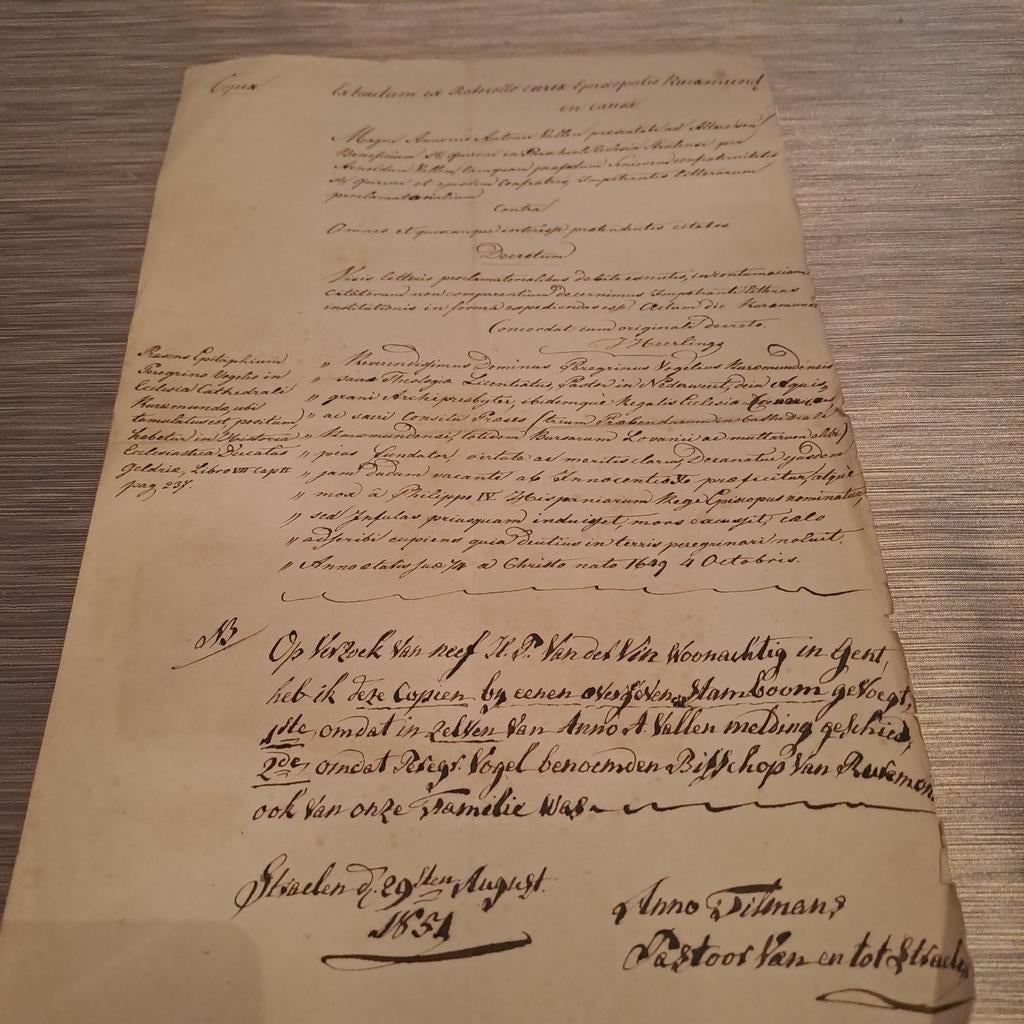 Copia.
Extractum ex Protocollo curiæ Episcopalis Ruræmund
in causa
Magni Annonis Antonii Vallen presentati ad Altare seu
Beneficium St. Quirini in Parochiali Ecclesia Stralensi per
Arnoldum Vallen tamquam præfatum Seniorem confraternitatis
St. Quirini et ejusdem confratres, Impetrantis litterarum
proclamatorialium
Contra
Omnes et quoscunque interesse prætendentes citatos
Decretum
Visis litteris proclamatorialibus debite executis, in contumaciam
Citatorum non comparentium decernimus Impetranti litteras
institutionis in forma expediendas esse Actum die Ruræmunde
Concordat cum originali decreto.
J Heerlings
Præsens Epitaphium
Peregrino Vogelio in
Eclesia Cathedrali
Ruræmundæ, ubi
tumulatus est, positum,
habetur in Historia
Eclesiastica Ducatus
Geldriæ, Libro VII Cap II
pag 237.
„ Reverendissimus Dominus Peregrinus Vogelius Ruræmundensis
„ sacræ Theologiæ Licentiatus, Pastor in Nederwert, dein Aquis
„ grani Archipresbyter, ibidemque Regalis Eclesiæ Canonicus,
„ ac sacri Consilii Præses (trium Præbendarum in Cathedrali
„ Ruræmundensi, totidem Bursarum Lovanii ac multarum alibi)
„ pius fundator, virtute ac meritis clarus, Decanatui ejusdem
„ jam dudum vacante ab Innocentio X præficitur, atque
„ mox a Philippo IV. Hispaniarum Rege Episcopus nominatur,
„ sed Infulas priusquam induisset, mors excussit, cælo
„ adscribi cupiens quia diutius in terris peregrinari noluit.
„ Anno ætatis suæ 74 a Christo nato 1649 4 Octobris.
NB
Op Verzoek Van neef H. P. Van der Vin Woonachtig in Gent,
heb ik deze Copien by eenen overgeven Stamboom gevoegt,
1ste omdat in Zelven Van Anno A. Vallen melding geschied,
2de omdat Peregr. Vogel benoemden Bisschop Van Ruremon
ook Van onze Familie was
Straelen d. 29sten August.
1851
Anno Tilmans
Pastoor Van en tot Straelen